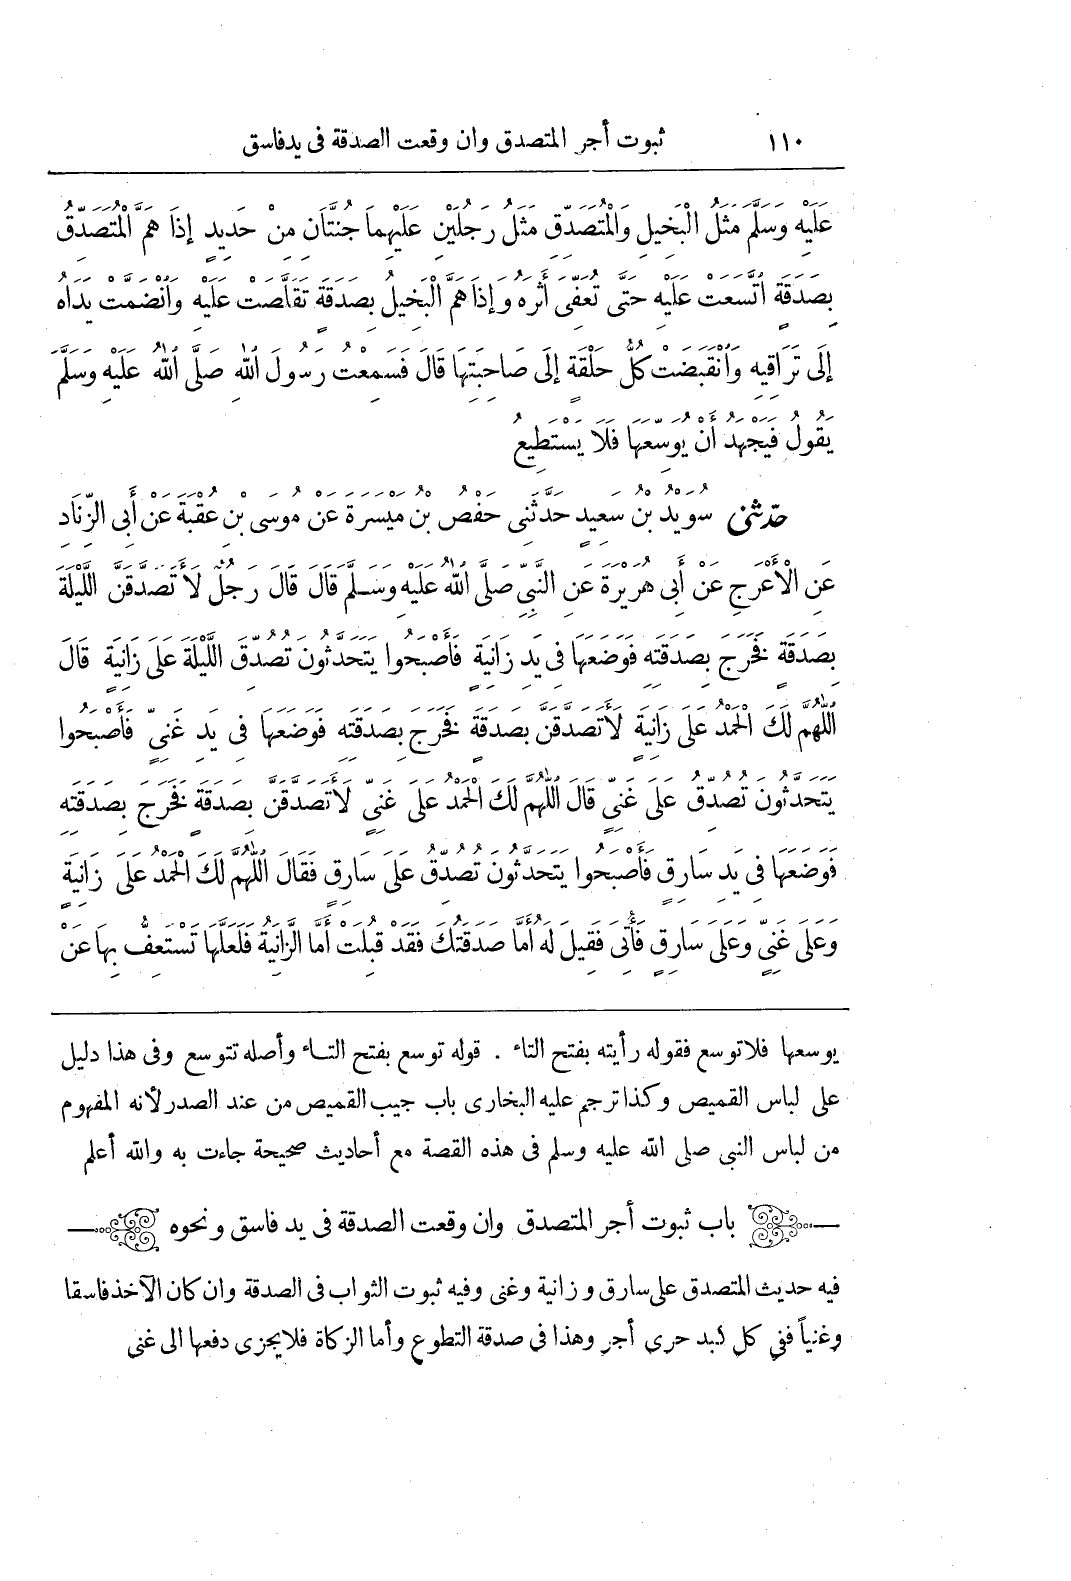 ١١٠ ثبوت أجر المتصدق وان وقعت الصدقة فى يد فاسق
عَلَيْهِ وَسَلَّمَ مَثَلُ الْبَخِيلِ وَالْمُتَصَدِّقِ مَثَلُ رَجُلَيْنِ عَلَيْهِمَا جُنَّتَانِ مِنْ حَدِيدٍ إِذَا هَمَّ الْمُتَصَدِّقُ
بِصَدَقَةٍ اتَّسَعَتْ عَلَيْهِ حَتَّى تُعَفِّىَ أَثَرَهُ وَإِذَا هَمَّ الْبَخِيلُ بِصَدَقَةٍ تَقَلَّصَتْ عَلَيْهِ وَانْضَمَّتْ يَدَاهُ
إِلَى تَرَاقِيهِ وَانْقَبَضَتْ كُلُّ حَلْقَةٍ إِلَى صَاحِبَتِهَا قَالَ فَسَمِعْتُ رَسُولَ اللهِ صَلَّى اللهُ عَلَيْهِ وَسَلَّمَ
يَقُولُ فَيَجْهَدُ أَنْ يُوَسِّعَهَا فَلَا يَسْتَطِيعُ
حَدَّثَنِى سُوَيْدُ بْنُ سَعِيدٍ حَدَّثَنِى حَفْصُ بْنُ مَيْسَرَةَ عَنْ مُوسَى بْنِ عُقْبَةَ عَنْ أَبِى الزِّنَادِ
عَنِ الْأَعْرَجِ عَنْ أَبِى هُرَيْرَةَ عَنِ النَّبِىِّ صَلَّى اللهُ عَلَيْهِ وَسَلَّمَ قَالَ قَالَ رَجُلٌ لَأَتَصَدَّقَنَّ اللَّيْلَةَ
بِصَدَقَةٍ فَخَرَجَ بِصَدَقَتِهِ فَوَضَعَهَا فِى يَدِ زَانِيَةٍ فَأَصْبَحُوا يَتَحَدَّثُونَ تُصُدِّقَ اللَّيْلَةَ عَلَى زَانِيَةٍ قَالَ
اللَّهُمَّ لَكَ الْحَمْدُ عَلَى زَانِيَةٍ لَأَتَصَدَّقَنَّ بِصَدَقَةٍ فَخَرَجَ بِصَدَقَتِهِ فَوَضَعَهَا فِى يَدِ غَنِىٍّ فَأَصْبَحُوا
يَتَحَدَّثُونَ تُصُدِّقَ عَلَى غَنِىٍّ قَالَ اللَّهُمَّ لَكَ الْحَمْدُ عَلَى غَنِىٍّ لَأَتَصَدَّقَنَّ بِصَدَقَةٍ فَخَرَجَ بِصَدَقَتِهِ
فَوَضَعَهَا فِى يَدِ سَارِقٍ فَأَصْبَحُوا يَتَحَدَّثُونَ تُصُدِّقَ عَلَى سَارِقٍ فَقَالَ اللَّهُمَّ لَكَ الْحَمْدُ عَلَى زَانِيَةٍ
وَعَلَى غَنِىٍّ وَعَلَى سَارِقٍ فَأُتِىَ فَقِيلَ لَهُ أَمَّا صَدَقَتُكَ فَقَدْ قُبِلَتْ أَمَّا الزَّانِيَةُ فَلَعَلَّهَا تَسْتَعِفُّ بِهَا عَنْ
يوسعها فلا توسع فقوله رأيته بفتح التاء . قوله توسع بفتح التاء وأصله تتوسع وفى هذا دليل
على لباس القميص وكذا ترجم عليه البخارى باب جيب القميص من عند الصدر لأنه المفهوم
من لباس النبى صلى الله عليه وسلم فى هذه القصة مع أحاديث صحيحة جاءت به والله أعلم
باب ثبوت أجر المتصدق وان وقعت الصدقة فى يد فاسق ونحوه
فيه حديث المتصدق على سارق وزانية وغنى وفيه ثبوت الثواب فى الصدقة وان كان الآخذ فاسقا
وغنياً ففى كل كبد حرى أجر وهذا فى صدقة التطوع وأما الزكاة فلا يجزى دفعها الى غنى